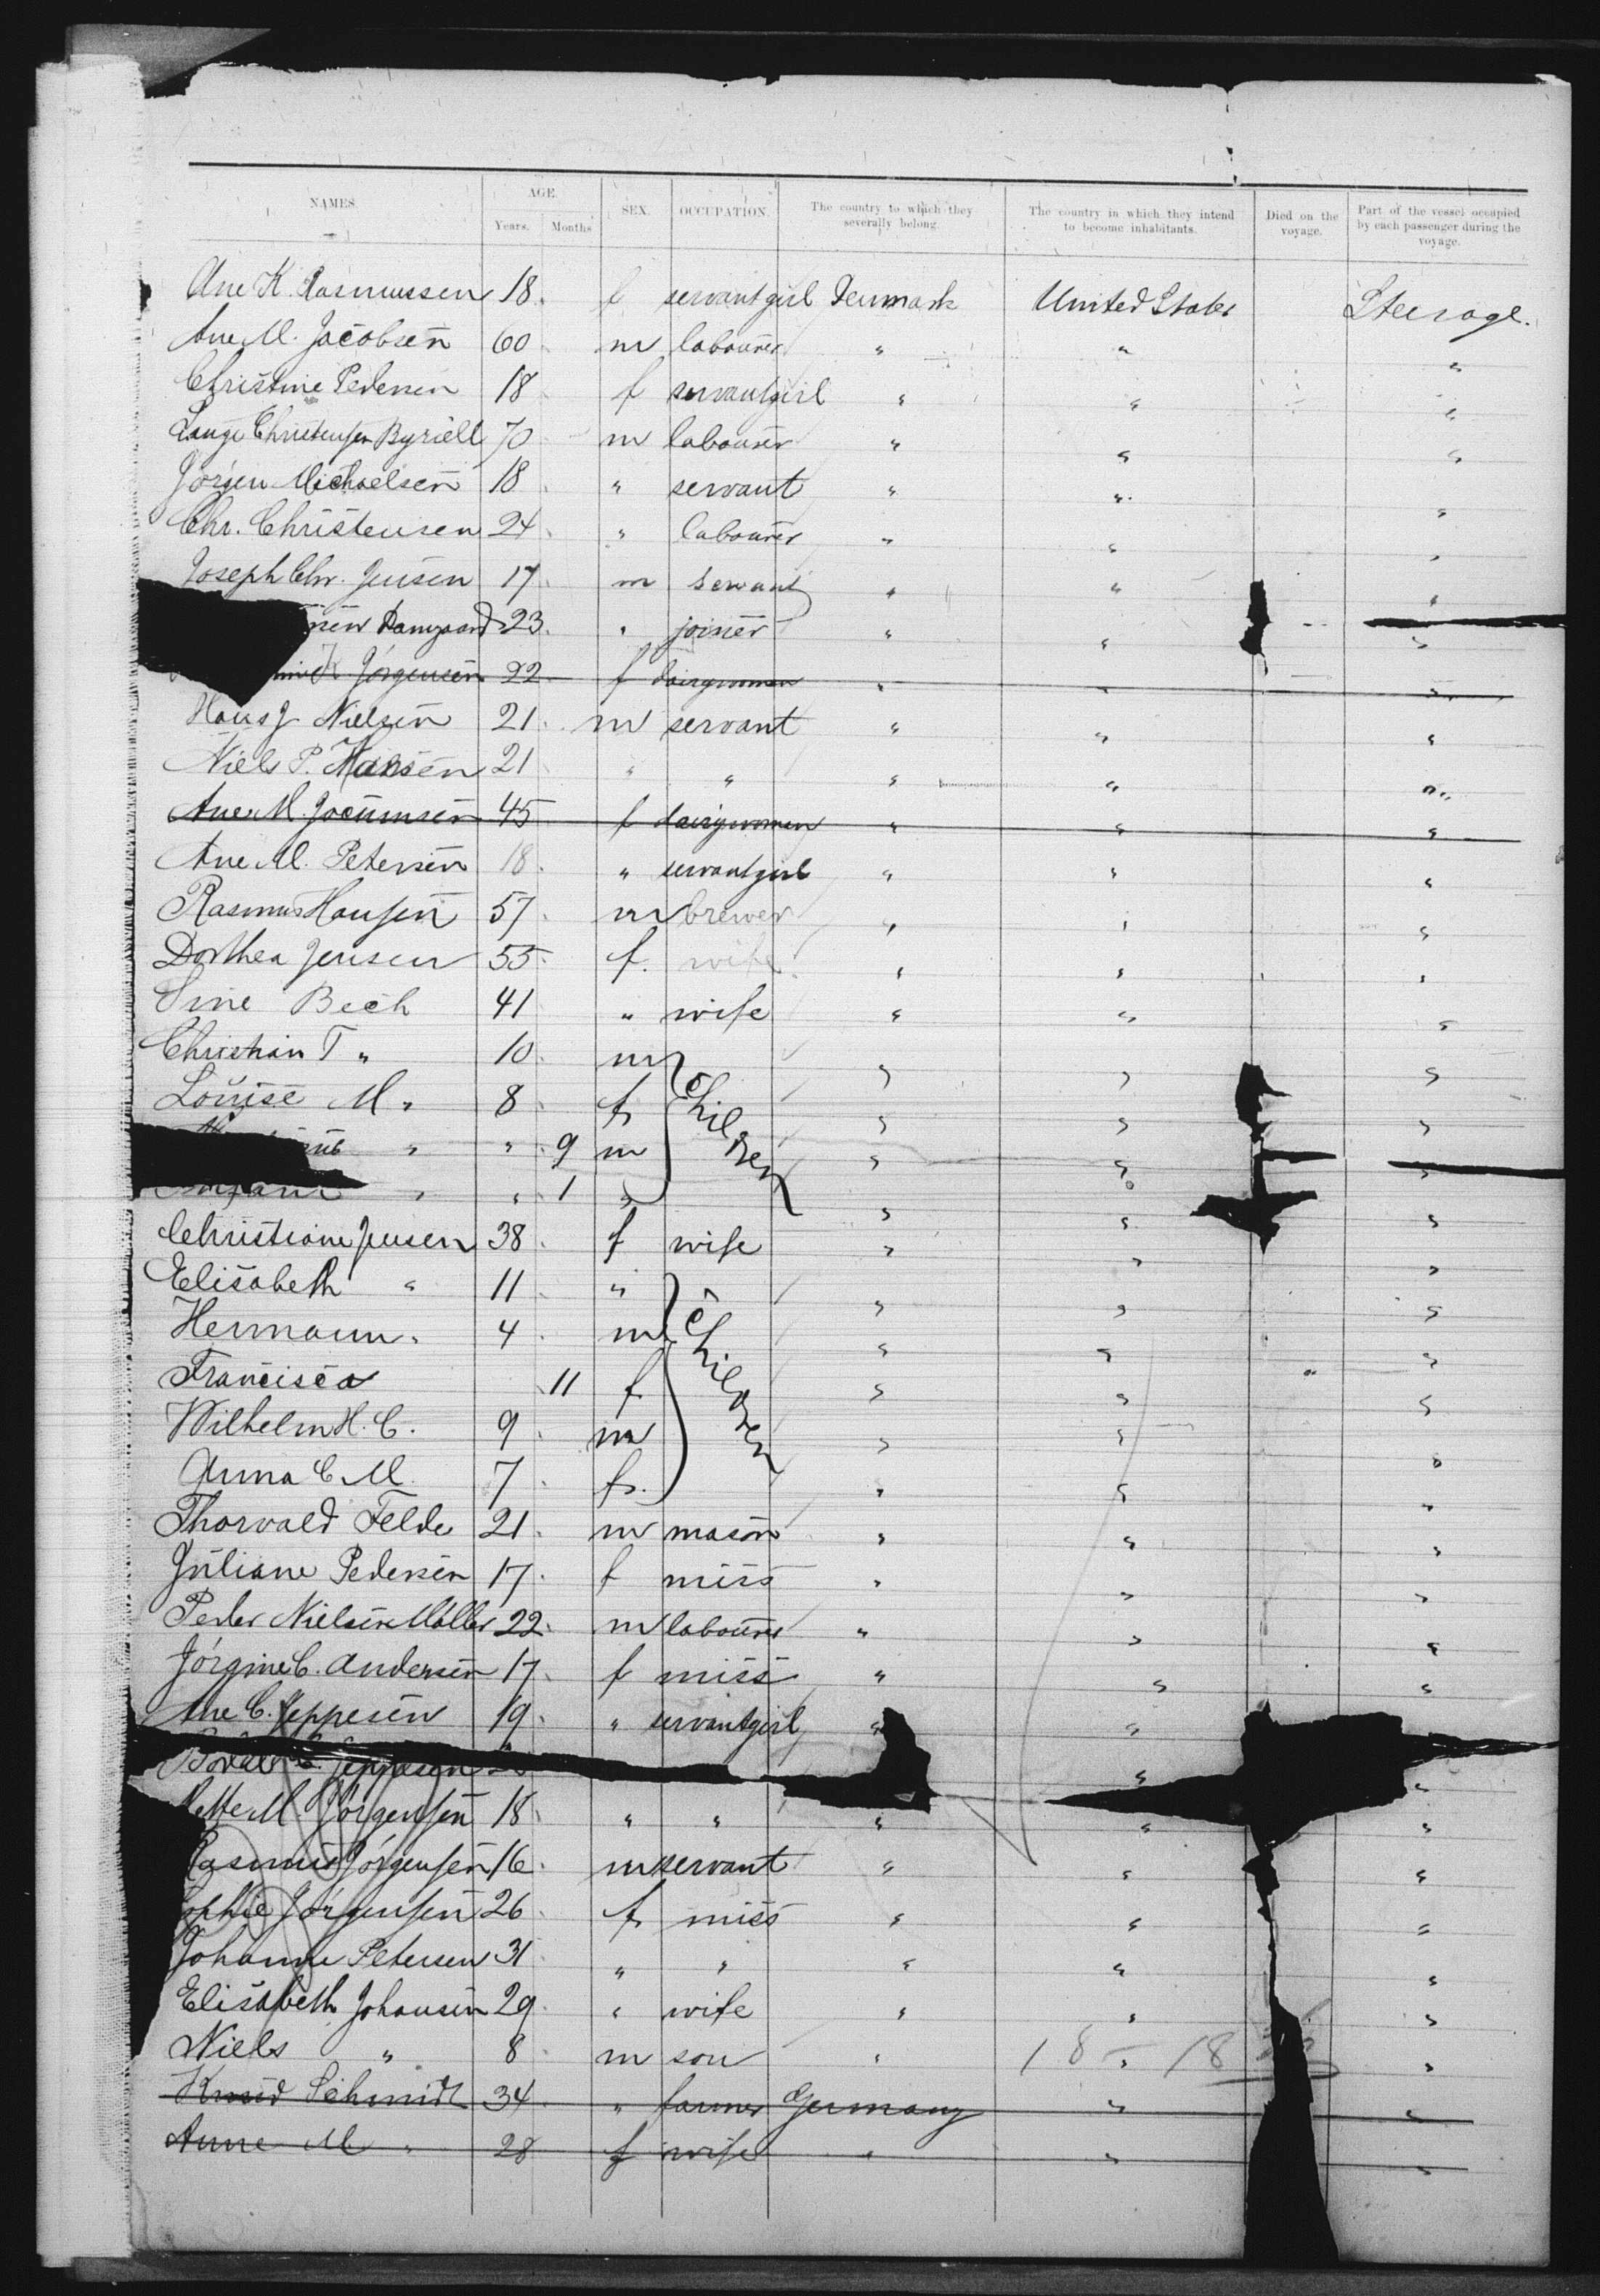 NAMES. AGE. SEX. OCCUPATION. The country to which they severally belong. The country in which they intend to become inhabitants. Died on the voyage. Part of the vessel occupied by each passenger during the voyage.
Years. Months
Ane K. Rasmussen 18. f servantgirl Denmark United States Steerage.
Ane M. Jacobsen 60 m labourer " " "
Christine Pedersen 18 f servantgirl " " "
Lauge Christensen Byriell 70 m labourer " " "
Jörgen Michaelsen 18 " servant " " "
Chr. Christensen 24 " labourer " " "
Joseph Chr. Jensen 17 m servant " " "
Damgaard 23. " joiner " " "
K. Jörgensen 22 f dairywomen " " "
Hans J. Nielsen 21. m servant " " "
Niels P. Hansen 21 " " " " "
Ane M. Jocumsen 45 f dairywomen " " "
Ane M. Petersen 18. " servantgirl " " "
Rasmus Hansen 57 m brewer " " "
Dorthea Jensen 55 f. wife " " "
Sine Bech 41 " wife " " "
Christian T " 10. m children " " "
Louise M " 8 f " " "
" " 9 m " " "
" " 1 " " " "
Christiane Jensen 38. f wife " " "
Elisabeth " 11 " children " " "
Hermann " 4 m " " "
Francisca 11 f " " "
Wilhelm H. C. 9 m " " "
Anna C. M. 7 f. " " "
Thorvald Felde 21. m mason " " "
Juliane Pedersen 17. f miss " " "
Peder Nielsen Möller 22. m labourer " " "
Jörgine C. Andersen 17 f miss " " "
Ane C. Jeppesen 19. " servantgirl " "
Jeppesen " "
Mette M. Jörgensen 18 " " " " "
Rasmus Jörgensen 16. m servant " " "
Sophie Jörgensen 26 f miss " " "
Johanne Petersen 31 " " " " "
Elisabeth Johansen 29. " wife " " "
Niels " 8 m son " " "
18 - 18
Knud Schmidt 34 " farmer Germany " "
Anne M " 28 f wife " " "